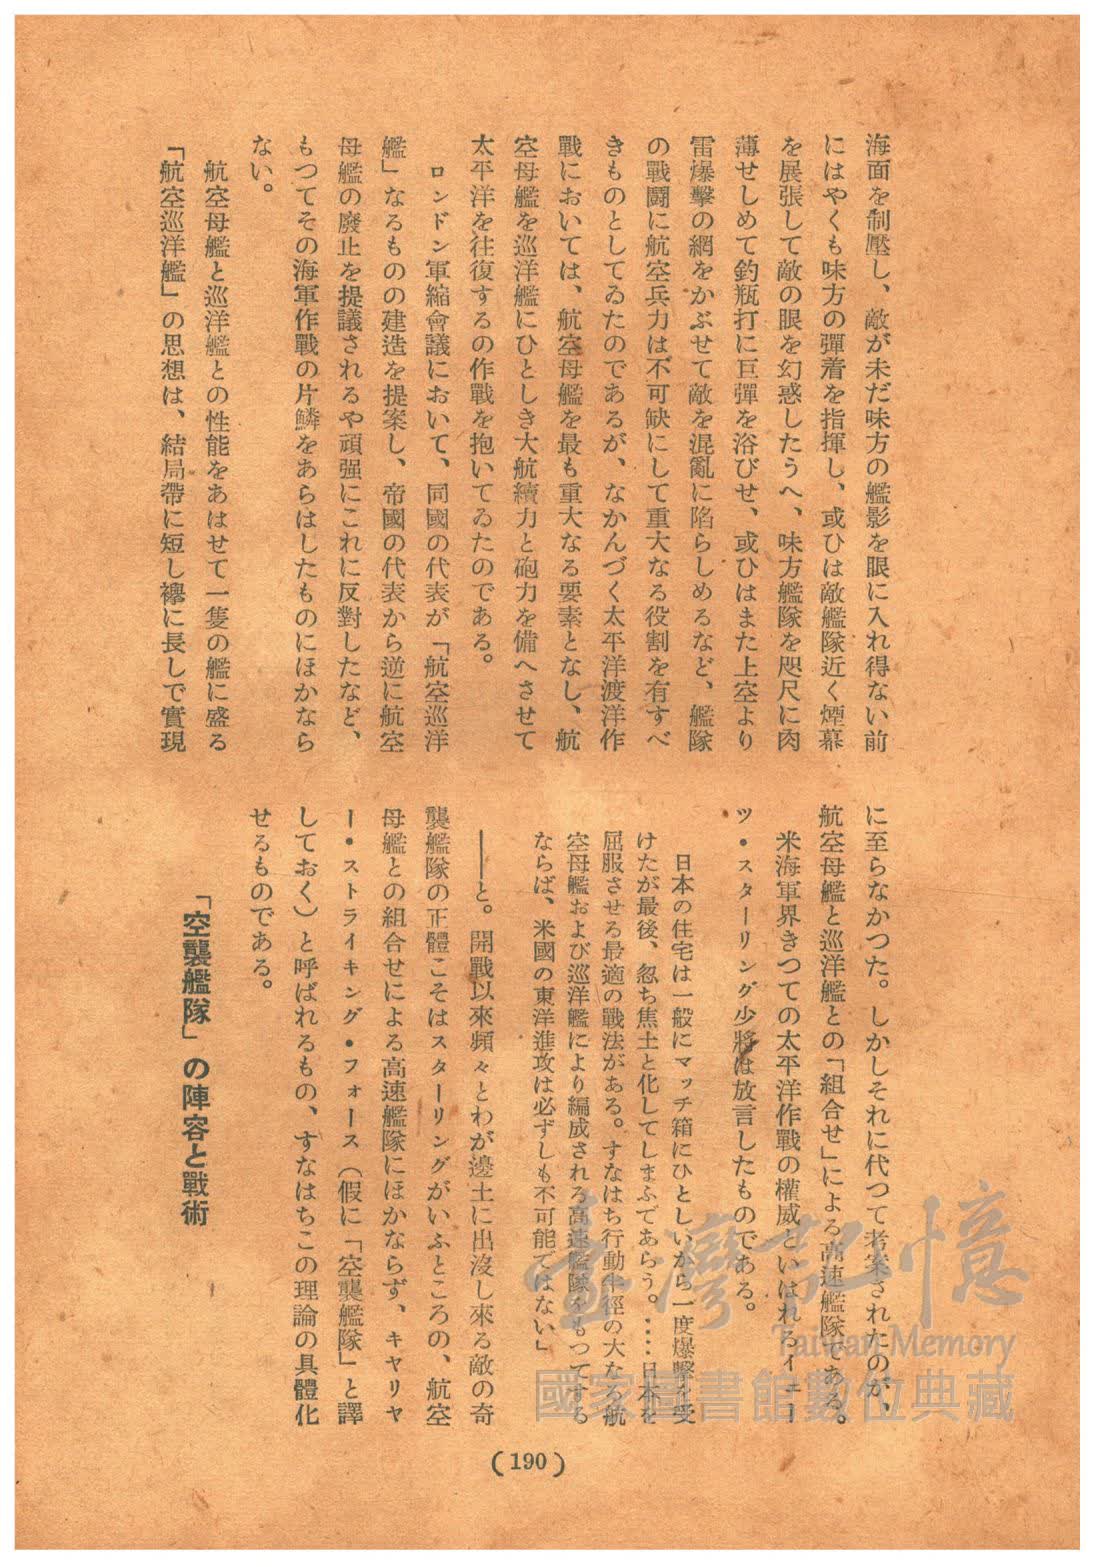 海面を制壓し、敵が未だ味方の艦影を眼に入れ得ない前
にはやくも味方の彈着を指揮し、或ひは敵艦隊近く煙幕
を展張して敵の眼を幻惑したうへ、味方艦隊を咫尺に肉
薄せしめて釣瓶打に巨彈を浴びせ、或ひはまた上空より
雷爆擊の網をかぶせて敵を混亂に陷らしめるなど、艦隊
の戰鬪に航空兵力は不可缺にして重大なる役割を有すべ
きものとしてゐたのであるが、なかんづく太平洋渡洋作
戰においては、航空母艦を最も重大なる要素となし、航
空母艦を巡洋艦にひとしき大航續力と砲力を備へさせて
太平洋を往復するの作戰を抱いてゐたのである。
ロンドン軍縮會議において、同國の代表が「航空巡洋
艦」なるものの建造を提案し、帝國の代表から逆に航空
母艦の廢止を提議されるや頑强にこれに反對したなど、
もつてその海軍作戰の片鱗をあらはしたものにほかなら
ない。
航空母艦と巡洋艦との性能をあはせて一隻の艦に盛る
「航空巡洋艦」の思想は、結局帶に短し襷に長しで實現
に至らなかつた。しかしそれに代つて考案されたのが、
航空母艦と巡洋艦との「組合せ」による高速艦隊である。
米海軍界きつての太平洋作戰の權威といはれるイエコ
ツ・スターリング少將は放言したものである。
日本の住宅は一般にマッチ箱にひとしいから一度爆擊を受
けたが最後、忽ち焦土と化してしまふであらう。‥‥日本を
屈服させる最適の戰法がある。すなはち行動半徑の大なる航
空母艦および巡洋艦により編成される高速艦隊をもつてする
ならば、米國の東洋進攻は必ずしも不可能ではない」
――と。開戰以來頻々とわが邊土に出沒し來る敵の奇
襲艦隊の正體こそはスターリングがいふところの、航空
母艦との組合せによる高速艦隊にほかならず、キヤリヤ
ー・ストライキング・フォース（假に「空襲艦隊」と譯
しておく）と呼ばれるもの、すなはちこの理論の具體化
せるものである。
「空襲艦隊」の陣容と戰術
(190)
臺灣記憶
Taiwan Memory
國家圖書館數位典藏